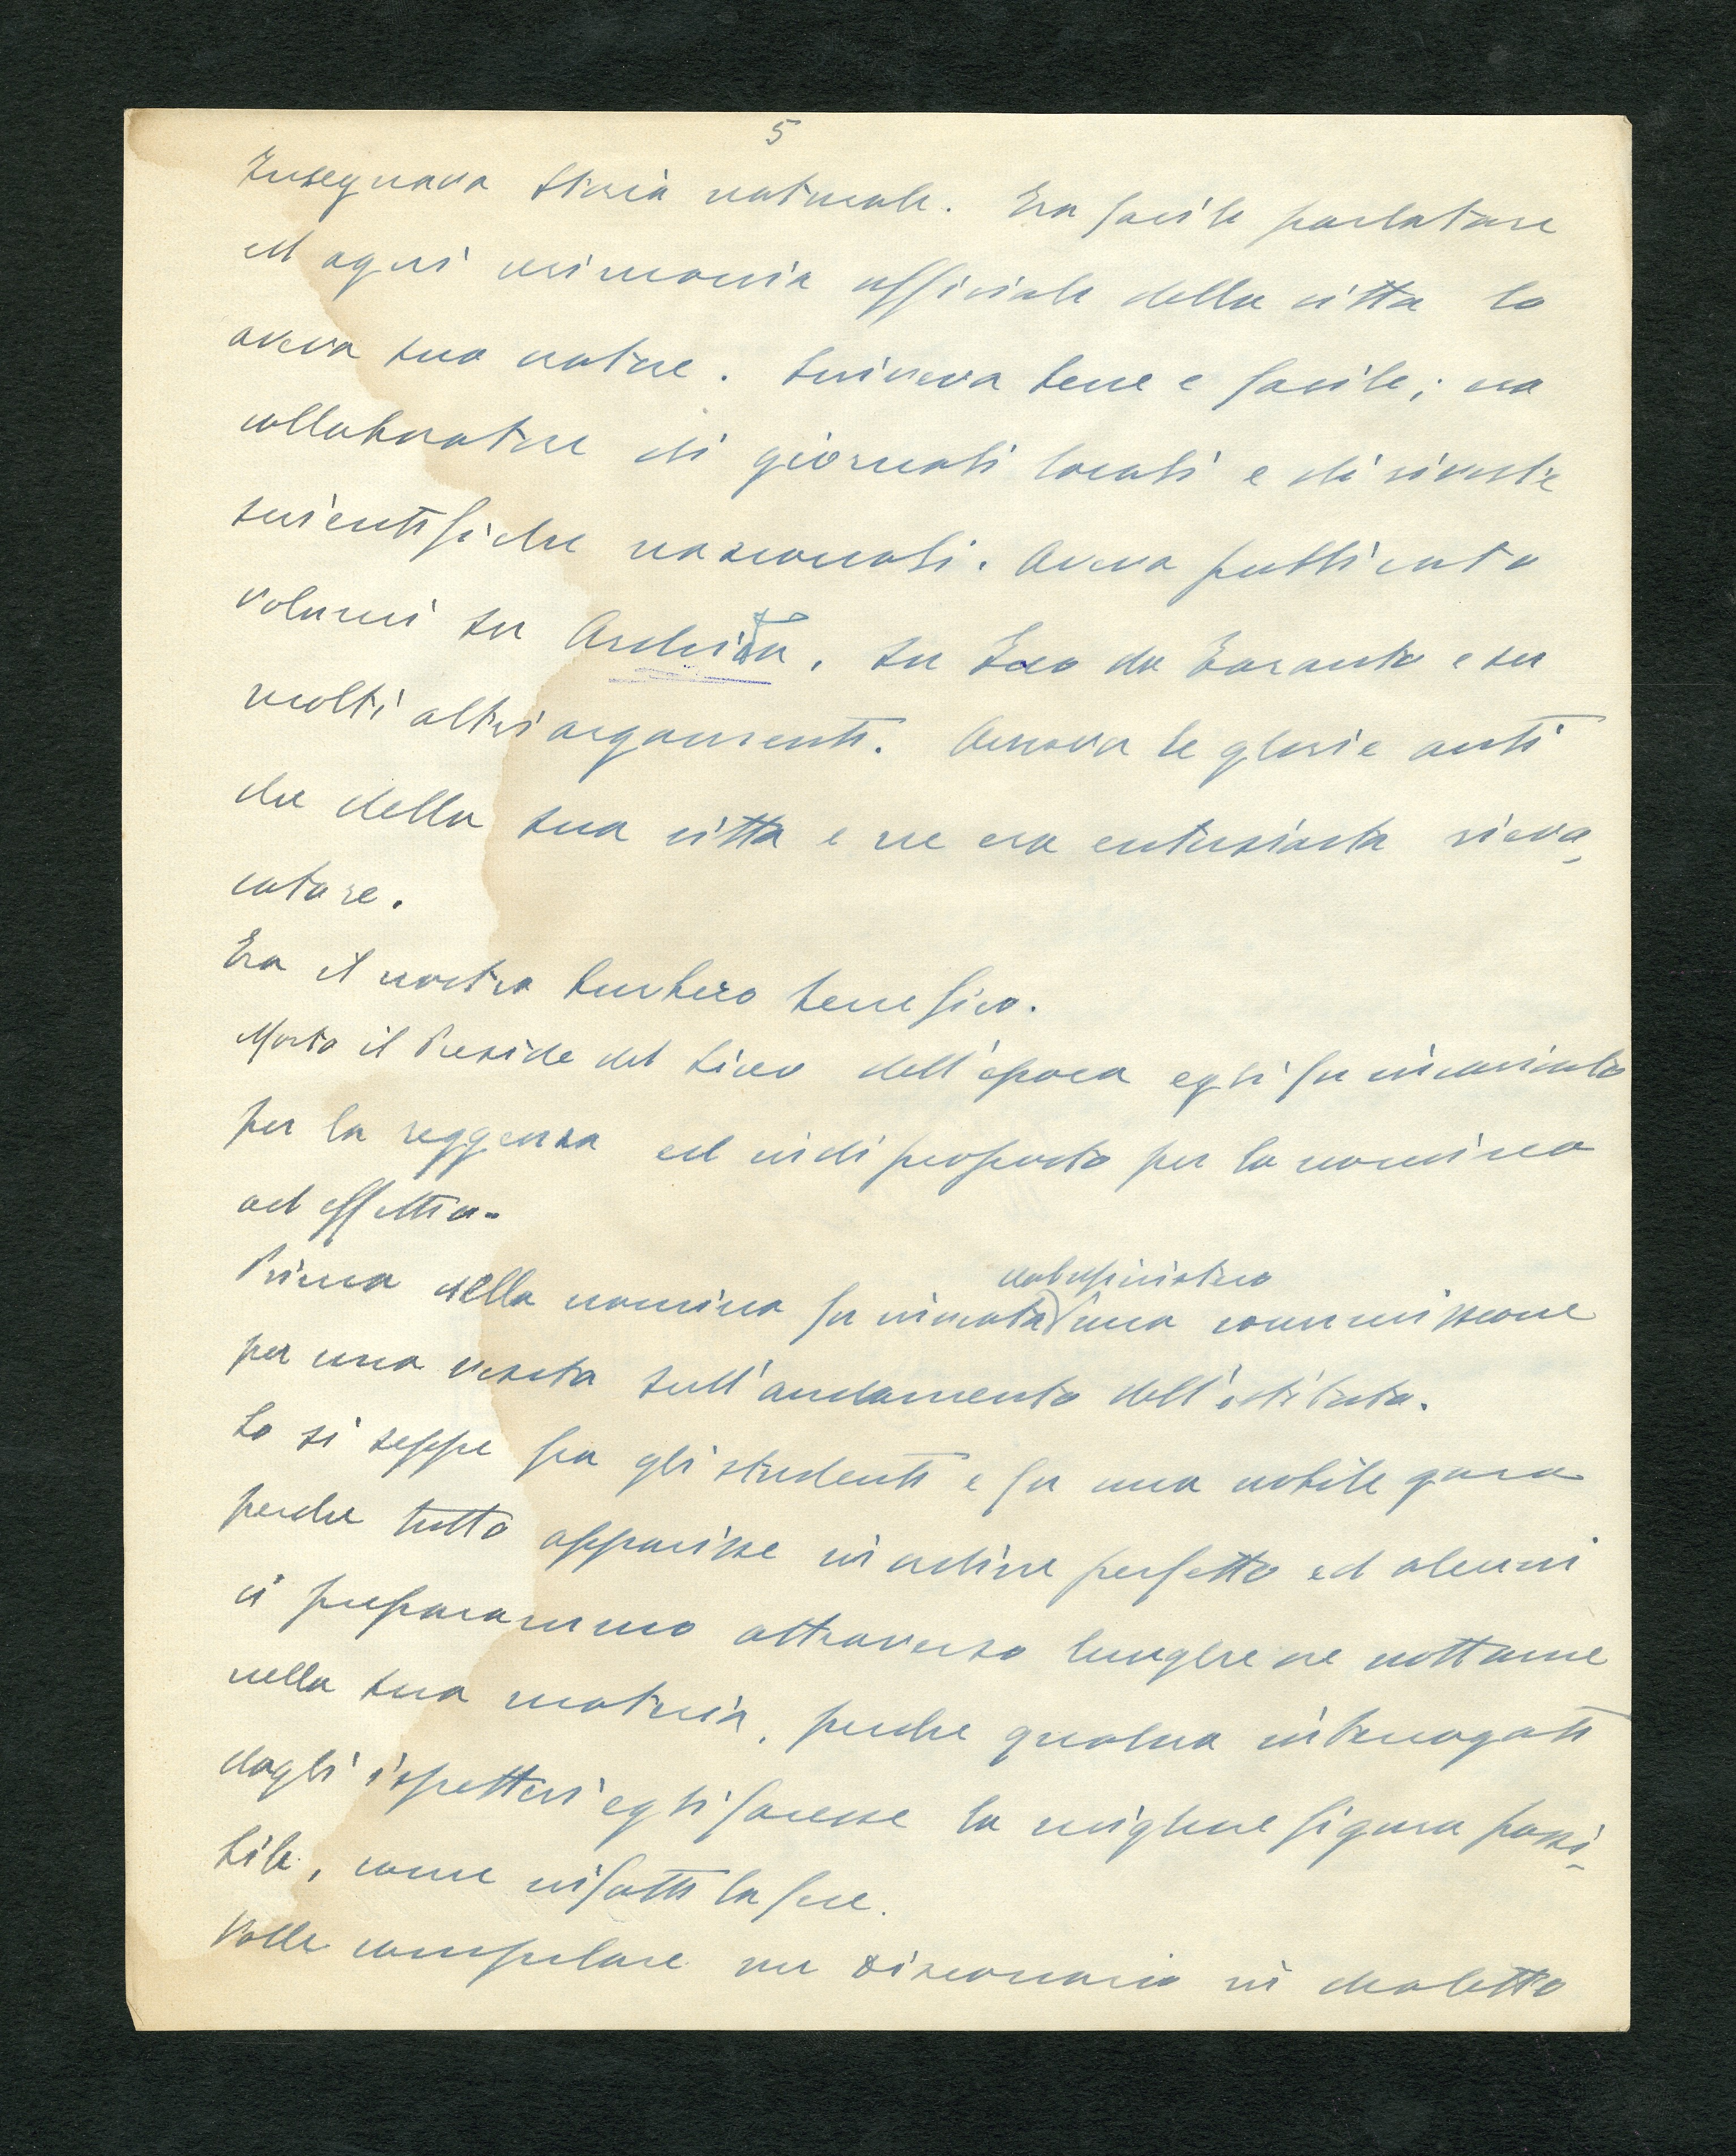 5
Insegnava storia naturale. Era facile parlatore
ed ogni cerimonia ufficiale della città lo
aveva suo oratore. Scriveva bene e facile; era
collaboratore di giornali locali e di riviste
scientifiche nazionali. Aveva pubblicato
volumi su Archita, su Icco da Taranto e su
molti altri argomenti. Amava le glorie anti
che della sua città e ne era entusiasta rievo
catore.
Era il nostro burbero benefico.
Morto il Preside del Liceo dell'epoca egli fu incaricato
per la reggenza ed indi proposto per la nomina
ad effettivo.
dal Ministero
Prima della nomina fu inviata una commissione
per una visita sull'andamento dell'istituto.
Lo si seppe fra gli studenti e fu una nobile gara
perchè tutto apparisse in ordine perfetto ed alcuni
ci preparammo attraverso lunghe ore notturne
nella sua materia, perchè qualora interrogati
dagli ispettori egli facesse la migliore figura possi
bile, come infatti la fece.
Volle compilare un dizionario in dialetto